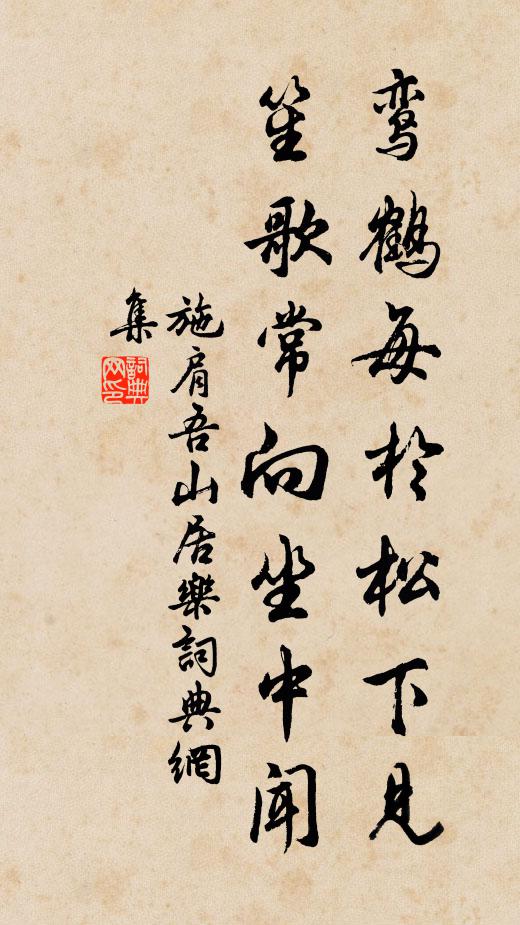 鸾鹤每於松下见
笙歌常向坐中闻
施肩吾山居樂詞典網
集
詞典
网印